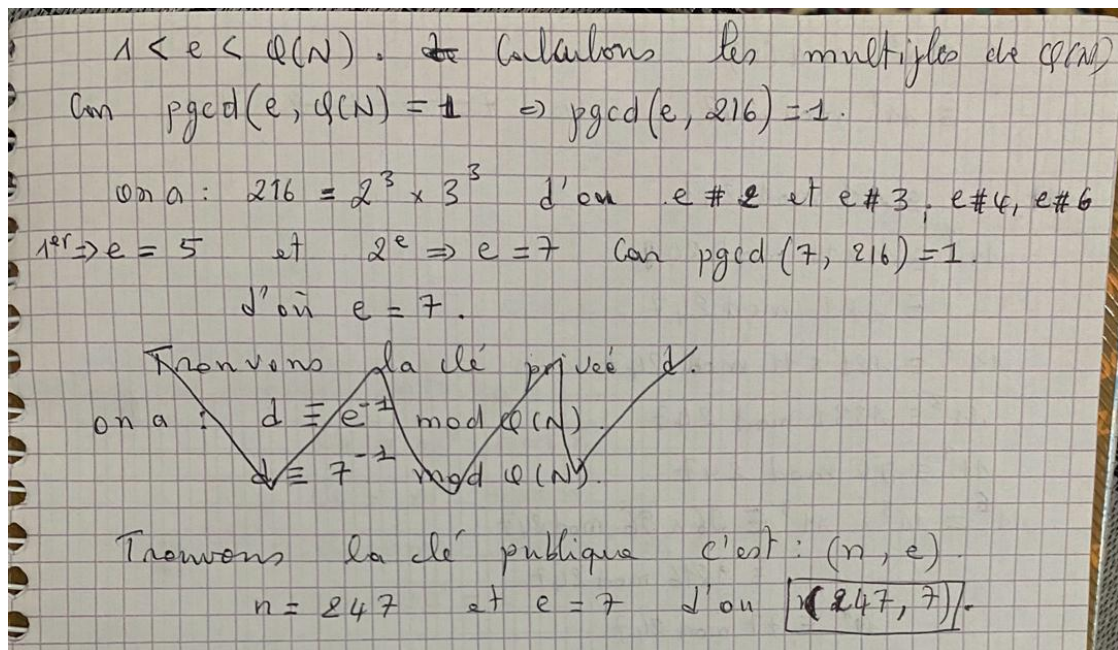 1 < e < φ(N). Calculons les multiples de φ(N)
Car pgcd(e, φ(N) = 1 => pgcd(e, 216) = 1.
on a : 216 = 2³ × 3³ d'ou e # 2 et e # 3, e # 4, e # 6
1er => e = 5 et 2e => e = 7 Car pgcd (7, 216) = 1.
d'où e = 7.
Trouvons la clé privée d.
on a : d ≡ e⁻¹ mod φ(N).
d ≡ 7⁻¹ mod φ(N).
Trouvons la clé publique c'est : (n, e)
n = 247 et e = 7 d'ou (247, 7).